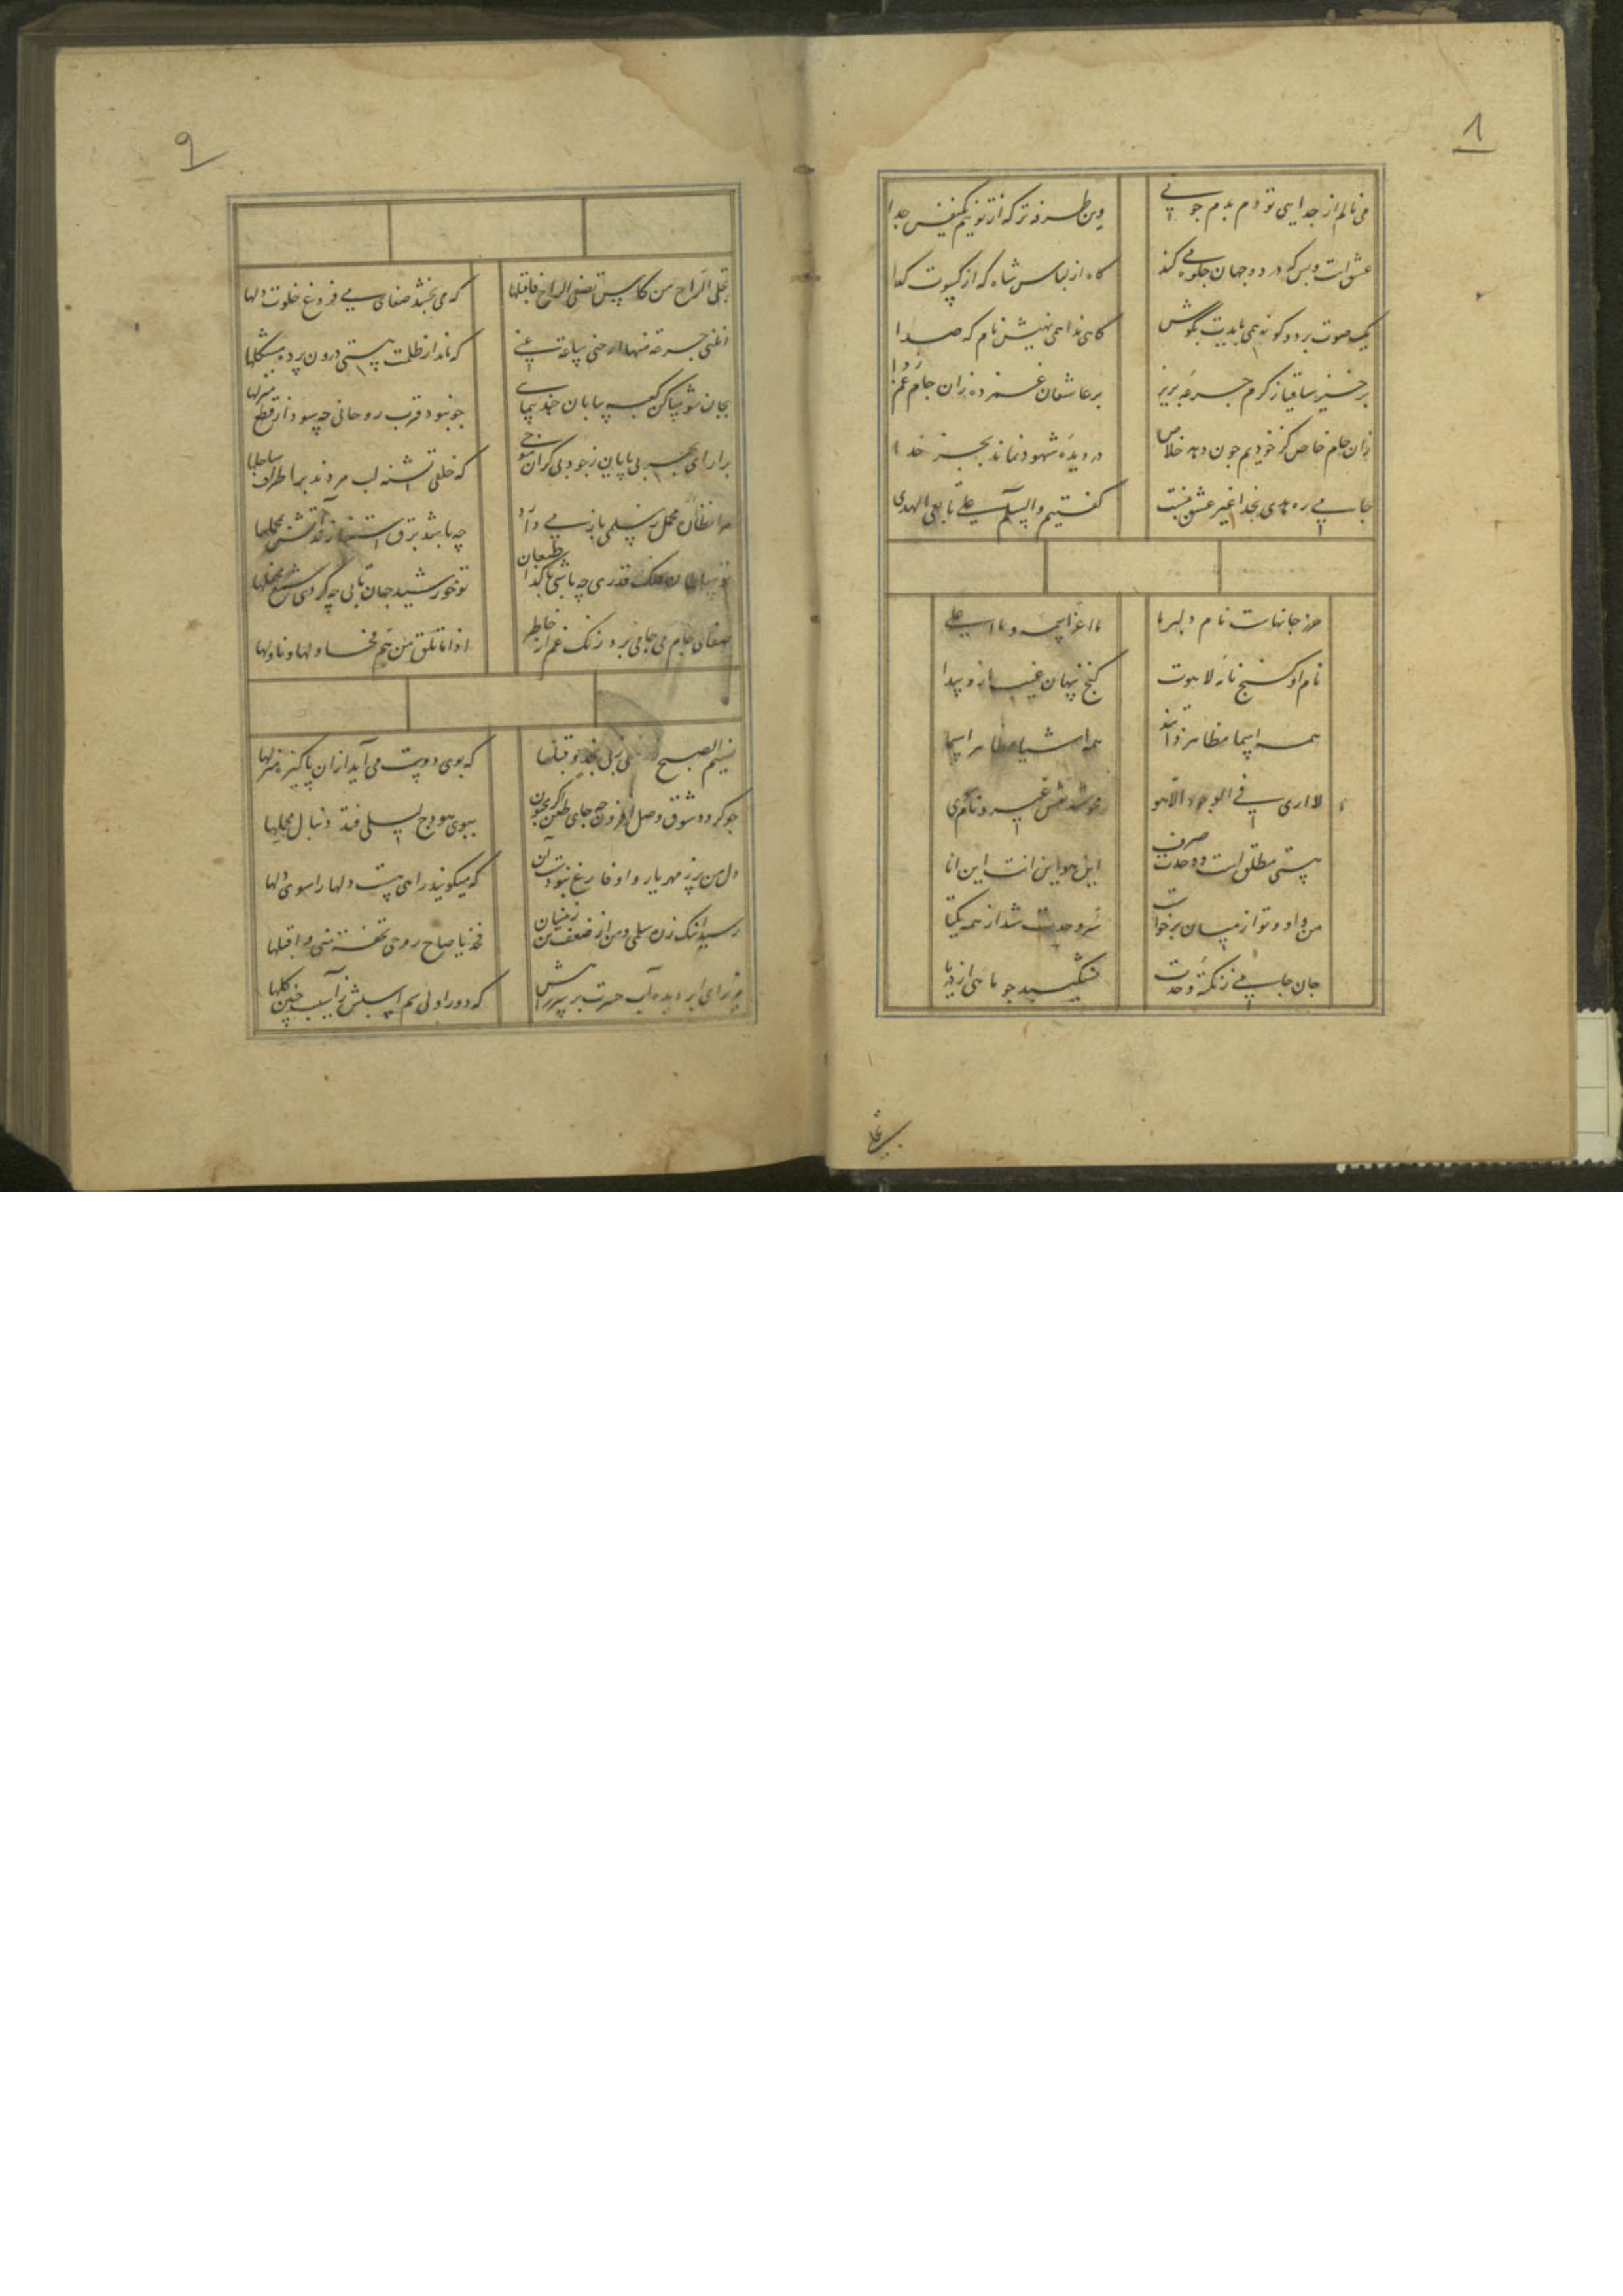 ٨
می نالم از جدایی تو دم بدم چو نی وین طرفه تر که از تو نیم یکنفس جدا
عشق است و بس که در دو جهان جلوه می کند گاه از لباس شاه که از کسوت کدا
یک صوت بر دو کونه همی آیدت بکوش کاهی ندا همی نهیش نام که صدا
برخیز ساقیا ز کرم جرعه بریز بر عاشقان غمزده زان جام غمزدا
زان جام خاص کز خودیم چون دهد خلاص در دیده شهود نماند بجز خدا
جامی ره هدی بخدا غیر عشق نیست کفتیم والسلام علی تابعی الهدی
حرز جانهاست نام دلبر ما ما اعز اسمه و ما اعلی
نام او کنج نامه لاهوت کنج پنهان غیب ازو پیدا
همه اسما مظاهر ذاتند همه اشیا مظاهر اسما
لا اری فی الوجود الا هو محو شد نقش غیر و نام سوی
هستی مطلق است و وحدت صرف این هو این انت این انا
من و او و تو از میان برخواست سر وحدت شد از همه یکتا
جان جامی ز نکته وحدت نشکیبد چو ماهی از دریا
تجلی
٩
تجلی الراح من کاس تصفی الروح فاقبلها که می بخشد صفای می فروغ خلوت دلها
اغثنی جرعة منها ارحنی ساعة عنی که ماند از ظلمت هستی درون پرده مشکلها
بجان شو ساکن کعبه بیابان چند پیمایی چو نبود قرب روحانی چه سود از قطع منزلها
برار ای بحر بی پایان ز جود بی کران موجی که خلقی تشنه لب مردند بر اطراف ساحلها
محمل سلمی باز می دارد چه باشد برق استغنا زند آتش بمحملها
تو سلطان فلک قدری چه باشی با کدا طبعان تو خورشید جهان تابی چه کردی شمع محفلها
صفای جام می جامی برد زنک غم از خاطر اذا ما تلق من هم فحاولها و ناولها
نسیم الصبح زر منی ربی نجد و قبلها که بوی دوست می آید ازان پاکیزه منزلها
چو کردد شوق وصل افزون چه جای طعن اکر مجنون ببوی هودج لیلی فتد دنبال محملها
دل من پر ز مهر یار و او فارغ نبودست آن که میکویند راهی هست دلها را سوی دلها
رسید اینک ز ره سلمی و من از ضعف تن زینسان فخذ یا صاح روحی تحفة منی و اقبلها
مریز ای ابر دیده آب حسرت بر سر راهش که دور اولی سم اسبش ز آسیب چنین کلها